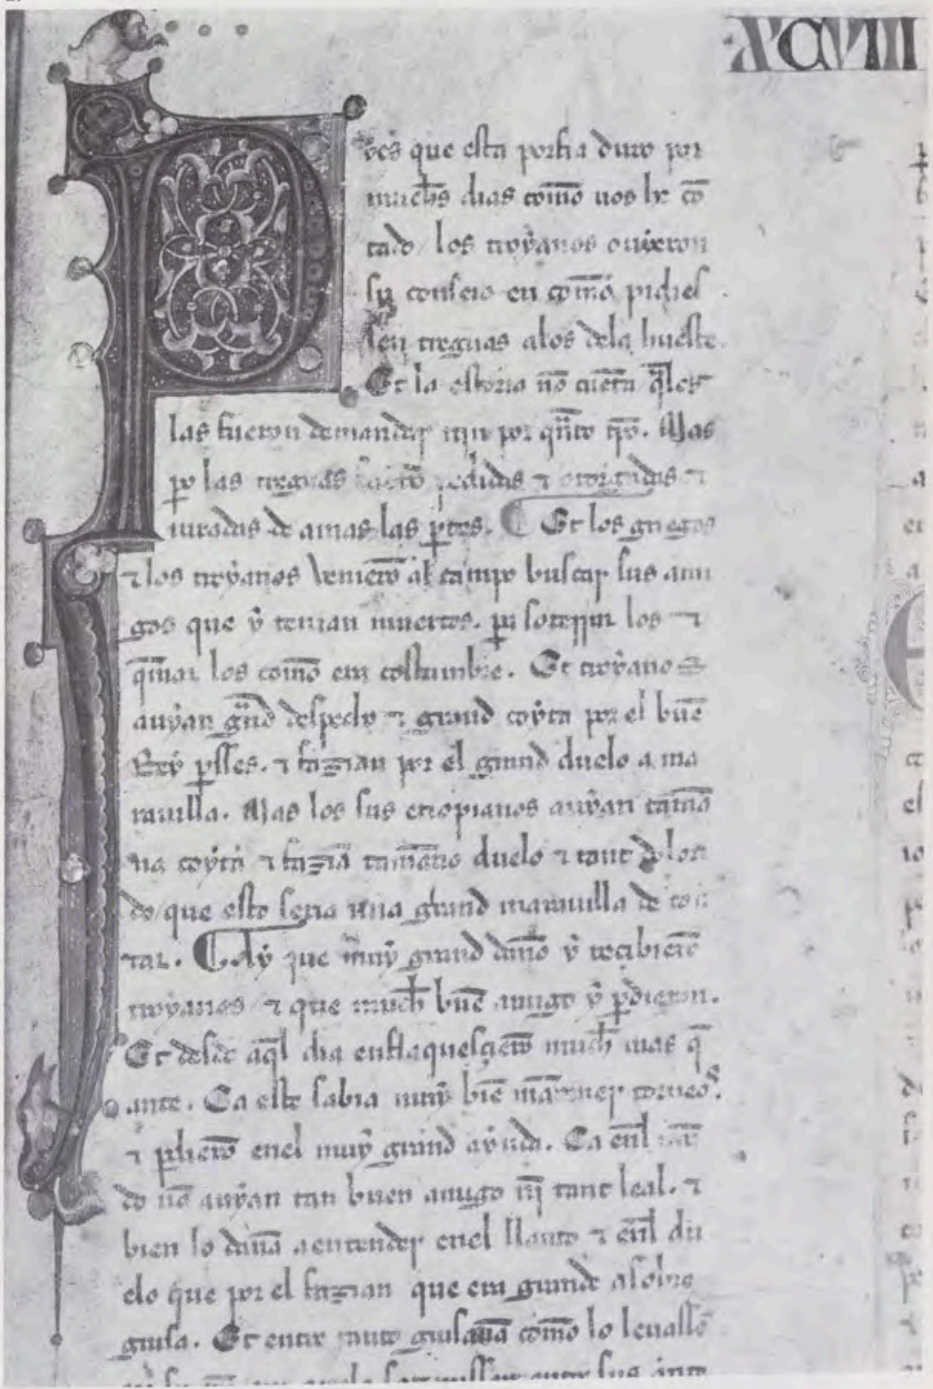 XCVIII
Pues que esta porfia duro por
muchos dias commo uos he con
tado / los troyanos ouieron
su conseio en commo pidies
sen treguas a los dela hueste.
Et la estoria non cuenta q̃les
las fueron demandar nin por q̃nto tp̃o. Mas
pero las treguas pedidas ⁊ otorgadas ⁊
iuradas de amas las p̃tes. Et los griegos
⁊ los troyanos venierõ al canpo buscar sus ami
gos que ẏ tenian muertos. para soterrar los ⁊
q̃mar los com̃o era costunbre. Et troẏanos
auẏan grãd despecho ⁊ grand coẏta por el buẽ
Reẏ p̃sses. ⁊ fazian por el grand duelo a ma
rauilla. Mas los sus etiopianos auẏan tamã
na coẏta ⁊ faziã tamaño duelo ⁊ tant dolori
do / que esto seria una grand marauilla de con
tar. Aẏ que muẏ grand daño ẏ recibierõ
troẏanos ⁊ que much buẽ amigo ẏ p̃dieron.
Et desde aq̃l dia enflaquesçierõ much mas q̃
ante. Ca este sabia muẏ biẽ mãtener torneos.
⁊ p̃dierõ enel muẏ grand aẏuda. Ca enl mũ
do nõ auẏan tan buen amigo nĩ tant leal. ⁊
bien lo dauã a entender enel llanto ⁊ enl du
elo que por el fazian que era grande a sobre
guisa. Et entre tanto guisauã com̃o lo leuassẽ